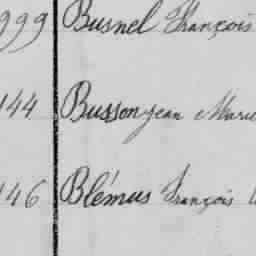 999 Busnel François
144 Busson jean Marie
146 Blémus François